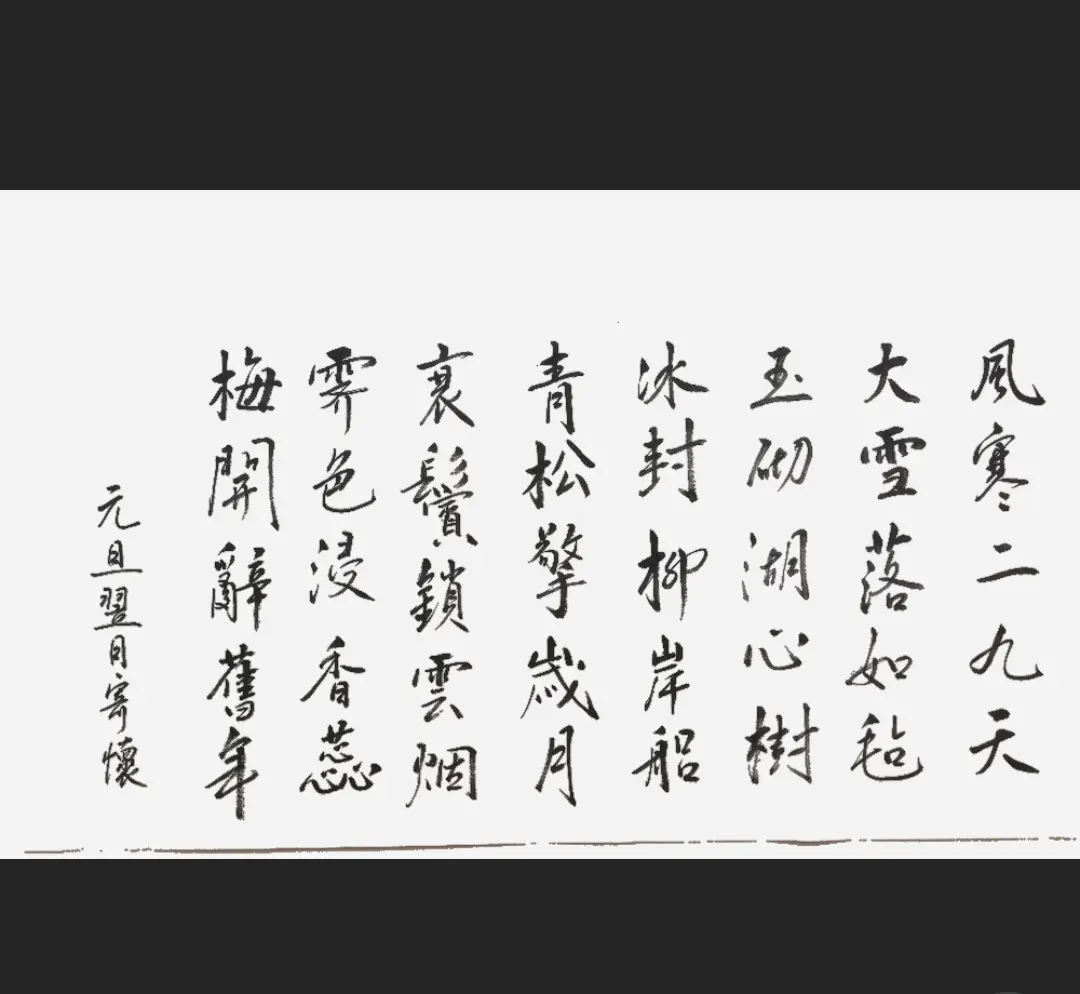 風寒二九天
大雪落如毡
玉砌湖心樹
冰封柳岸船
青松擎歲月
衰鬢鎖雲烟
霽色浸香蕊
梅開辭舊年
元旦翌日寄懷